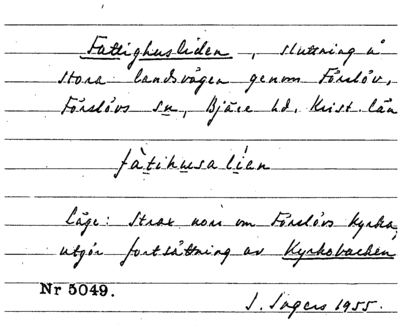 Fattighusliden, sluttning å
stora landsvägen genom Förslöv,
Förslövs sn, Bjäre hd, Krist. län
fàtihusalien
Läge: Strax norr om Förslövs kyrka,
utgör fortsättning av Kyrkobacken
Nr 5049.
I. Ingers 1955.